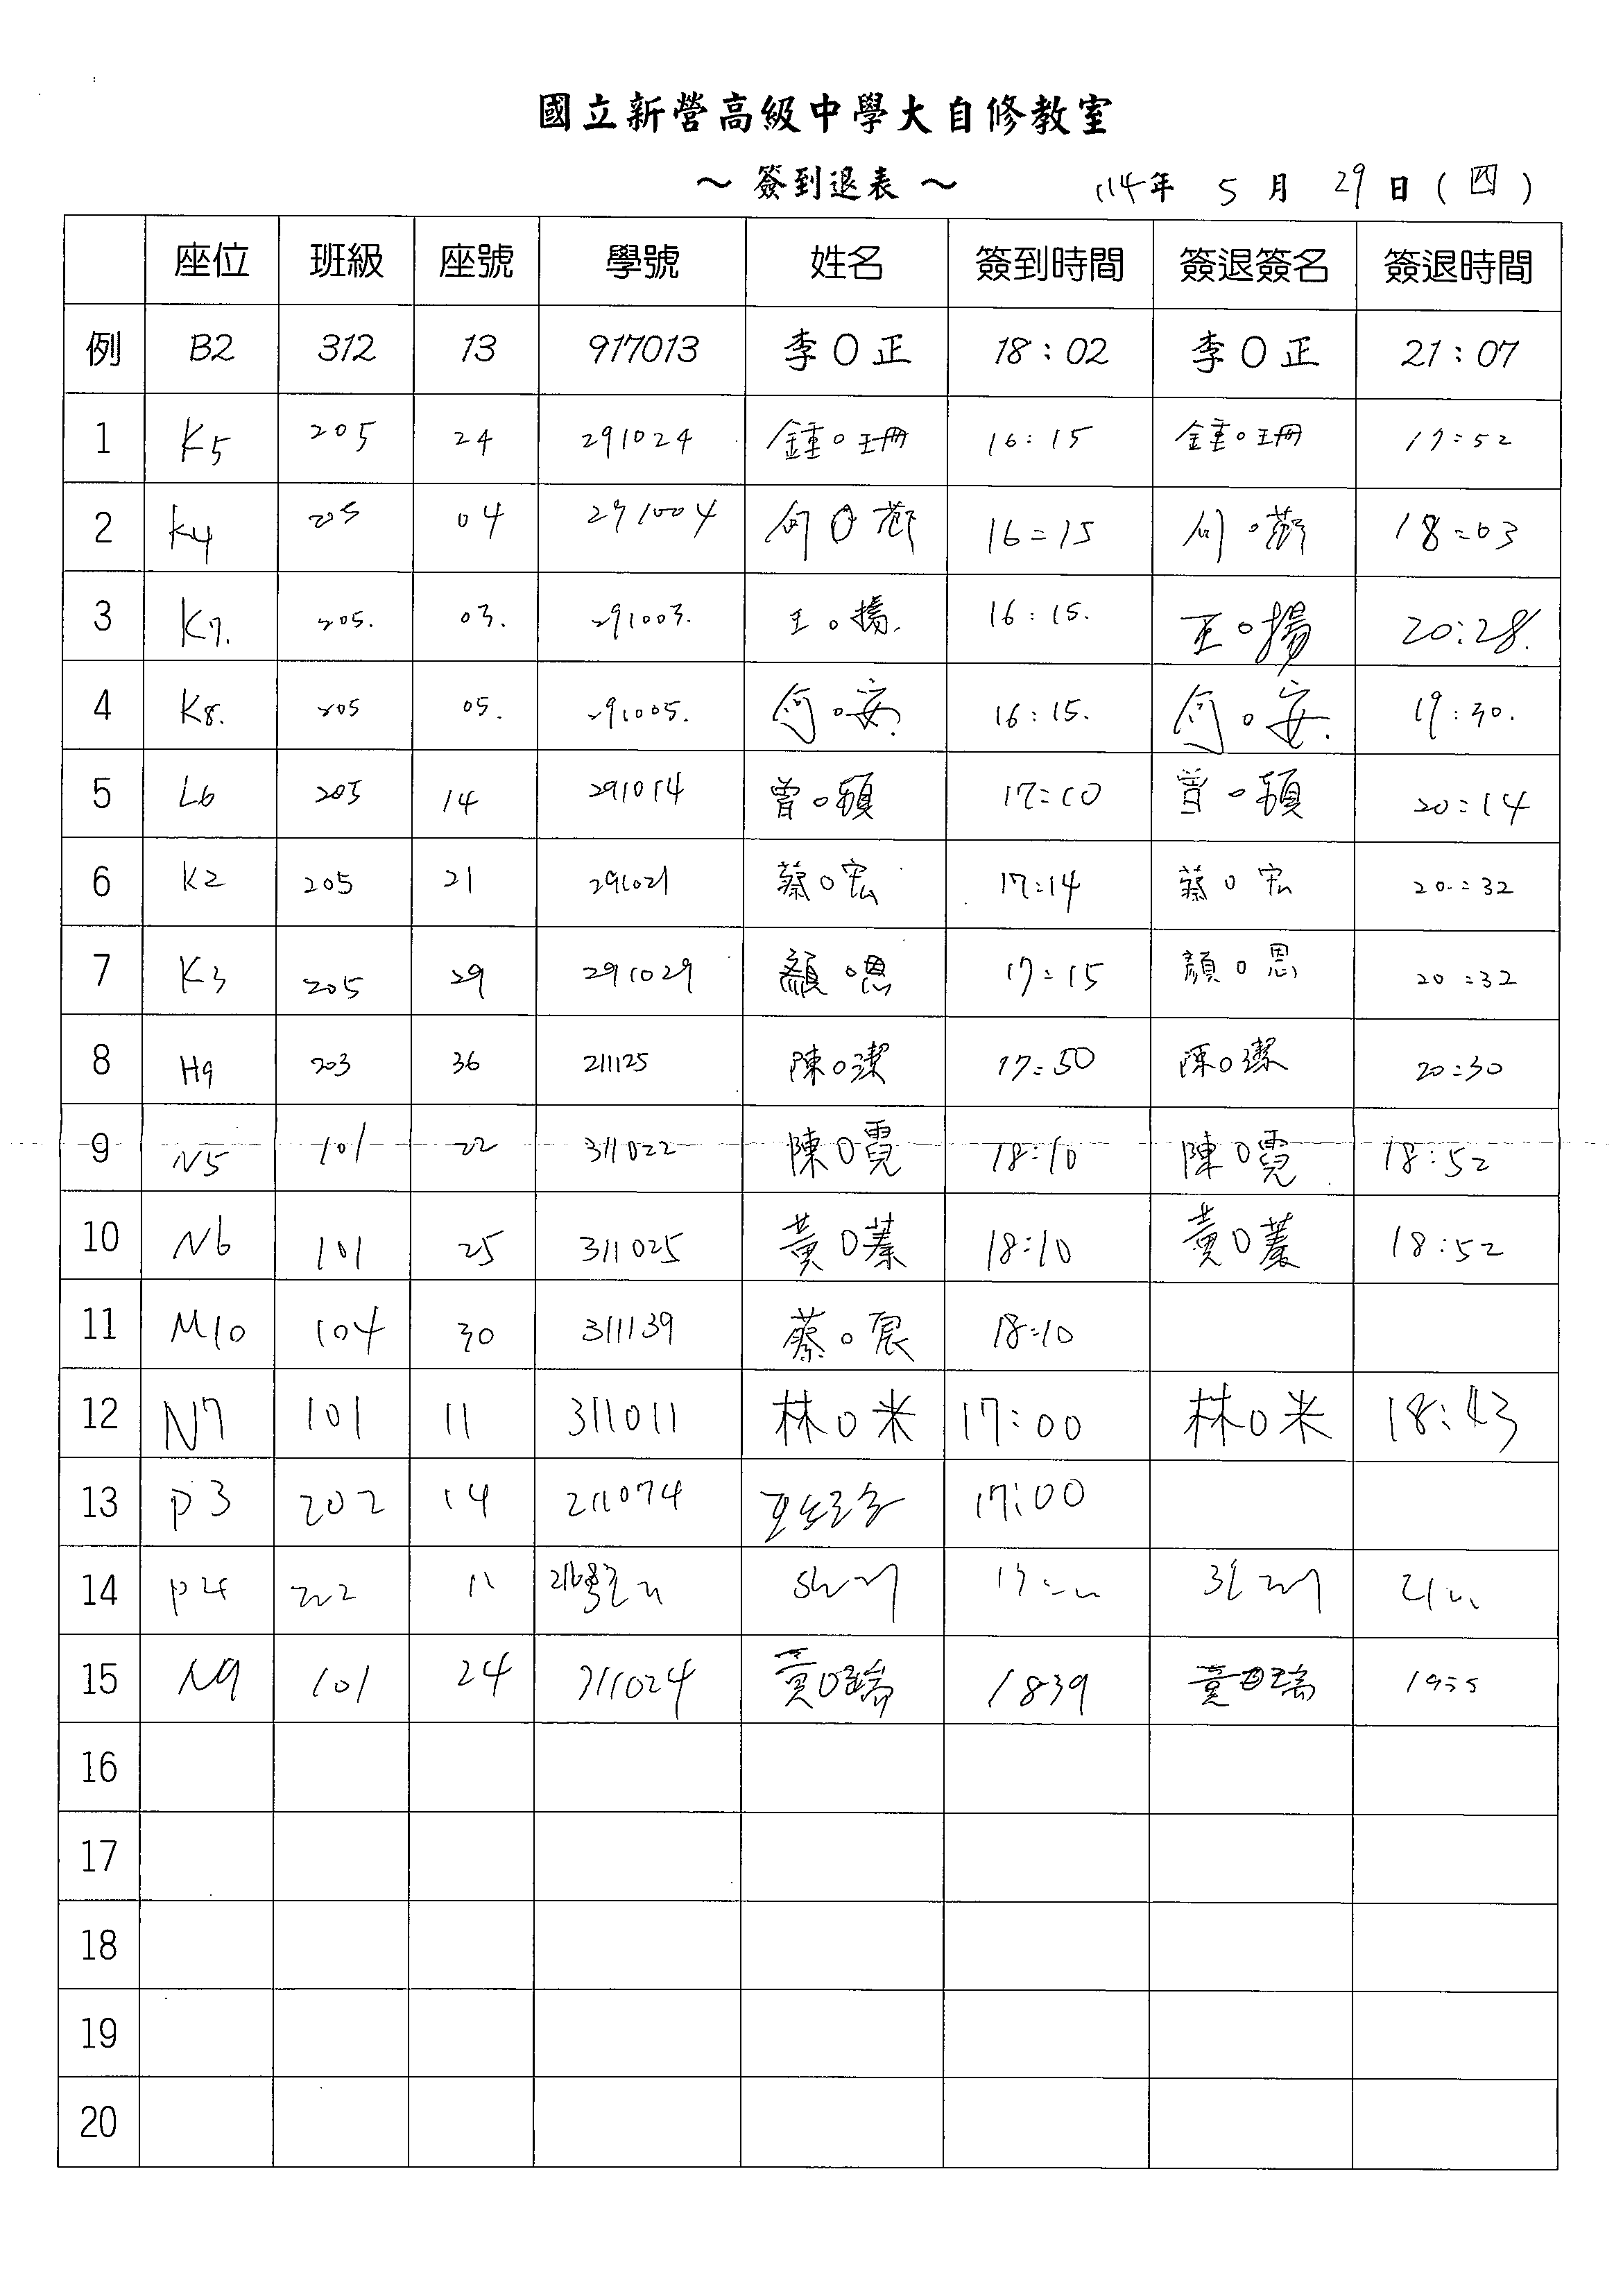 國立新營高級中學大自修教室
～ 簽到退表 ～ 114年 5 月 29 日 ( 四 )
座位 班級 座號 學號 姓名 簽到時間 簽退簽名 簽退時間
例 B2 312 13 917013 李O正 18:02 李O正 21:07
1 K5 205 24 291024 鍾O珊 16:15 鍾O珊 17:52
2 K4 205 04 291004 何O 16:15 何O 18:03
3 K7. 205. 03. 291003. 王O揚. 16:15. 王O揚 20:28.
4 K8. 205 05. 291005. 何O安. 16:15. 何O安. 19:30.
5 L6 205 14 291014 曾O穎 17:10 曾O穎 20:14
6 K2 205 21 291021 蔡O宏 17:14 蔡O宏 20:32
7 K3 205 29 291029 顏O恩 17:15 顏O恩 20:32
8 H9 203 36 211125 陳O潔 17:50 陳O潔 20:30
9 N5 101 22 311022 陳O霓 18:10 陳O霓 18:52
10 N6 101 25 311025 黃O蓁 18:10 黃O蓁 18:52
11 M10 104 30 311139 蔡O宸 18:10
12 N7 101 11 311011 林O米 17:00 林O米 18:43
13 P3 202 14 211074 17:00
14 P4 202 11
15 N9 101 24 311024 黃O瑞 1839 黃O瑞
16
17
18
19
20